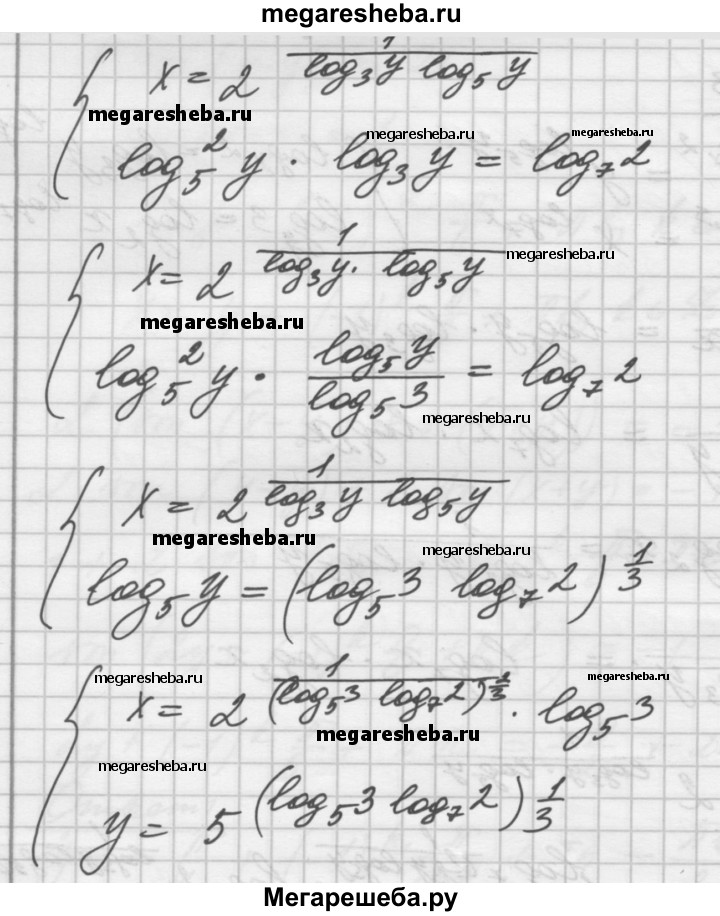 megaresheba.ru
x = 2^{\frac{1}{\log_3 y \log_5 y}}
megaresheba.ru megaresheba.ru megaresheba.ru
\log_5^2 y \cdot \log_3 y = \log_7 2
x = 2^{\frac{1}{\log_3 y \cdot \log_5 y}} megaresheba.ru
megaresheba.ru
\log_5^2 y \cdot \frac{\log_5 y}{\log_5 3} = \log_7 2
megaresheba.ru
x = 2^{\frac{1}{\log_3 y \log_5 y}}
megaresheba.ru megaresheba.ru
\log_5 y = (\log_5 3 \log_7 2)^{\frac{1}{3}}
megaresheba.ru megaresheba.ru
x = 2^{\frac{1}{(\log_5 3 \log_7 2)^{\frac{2}{3}}} \cdot \log_5 3}
megaresheba.ru
megaresheba.ru
y = 5^{(\log_5 3 \log_7 2)^{\frac{1}{3}}}
Мегарешеба.ру